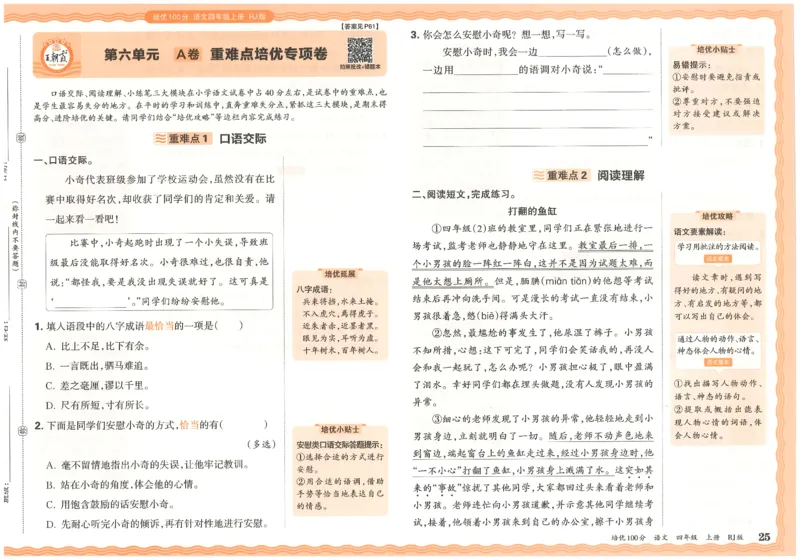 培优100分 语文四年级上册 RJ版
王朝霞
第六单元 A卷 重难点培优专项卷
【答案见P61】
拍照批改+错题本
口语交际、阅读理解、小练笔三大模块在小学语文试卷中占40分左右,是试卷中的重难点,也
是学生最容易失分的地方。在平时的学习和训练中,直奔重难失分点,紧抓这三大模块,是期末得
高分、进阶培优的关键。请同学们结合“培优攻略”等边栏内容完成练习。
重难点1 口语交际
一、口语交际。
小奇代表班级参加了学校运动会,虽然没有在比
赛中取得好名次,却收获了同学们的肯定和关爱。请
一起来看一看吧!
比赛中,小奇起跑时出现了一个小失误,导致班
级最后没能取得好名次。小奇很难过,也很自责,他
说:“都怪我,要是我没出现失误就好了。这可真是
‘____________’。”同学们纷纷安慰他。
1. 填入语段中的八字成语最恰当的一项是( )
A. 比上不足,比下有余。
B. 一言既出,驷马难追。
C. 差之毫厘,谬以千里。
D. 尺有所短,寸有所长。
2. 下面是同学们安慰小奇的方式,恰当的有( )
(多选)
A. 毫不留情地指出小奇的失误,让他牢记教训。
B. 站在小奇的角度,体会他的心情。
C. 用饱含鼓励的话安慰小奇。
D. 先耐心听完小奇的倾诉,再有针对性地进行安慰。
培优拓展
八字成语:
兵来将挡,水来土掩。
不入虎穴,焉得虎子。
近朱者赤,近墨者黑。
眼见为实,耳听为虚。
十年树木,百年树人。
培优小贴士
安慰类口语交际答题提示:
①选择合适的方式进行
安慰。
②用合适的语调,借助
手势等恰当地表达自己
的情感。
(弥封线内不要答题)
3. 你会怎么安慰小奇呢?想一想,写一写。
安慰小奇时,我会一边____________(怎么做),
一边用____________的语调对小奇说:“________
”
培优小贴士
易错提示:
①安慰时要避免指责或
批评。
②尊重对方,不要强迫
对方接受建议或解决
方案。
重难点2 阅读理解
二、阅读短文,完成练习。
打翻的鱼缸
①四年级(2)班的教室里,同学们正在紧张地进行一
场考试,监考老师也静静地守在这里。教室最后一排,一
个小男孩的脸一阵红一阵白,这并不是因为试题太难,而
是他太想上厕所。但是,腼腆(miǎn tiǎn)的他想等考试
结束后再冲向洗手间。可是漫长的考试一直没有结束,小
男孩很着急,憋(biē)得满头大汗。
②忽然,最尴尬的事发生了,他尿湿了裤子。小男孩
不知所措,心想:这下可完了,同学们会笑话我的,再没人
会和我一起玩了,怎么办呢?小男孩担心极了,眼中盈满
了泪水。幸好同学们都在埋头做题,没有人发现小男孩的
异常。
③细心的老师发现了小男孩的异常,他轻轻地走到小
男孩身边,立刻就明白了一切。随后,老师不动声色地来
到窗边,端起窗台上的鱼缸走过来,经过小男孩身边时,他
“一不小心”打翻了鱼缸,小男孩身上溅满了水。这突如其
来的“事故”惊扰了其他同学,大家都回过头来看着老师和
小男孩。老师连忙向小男孩道歉,并示意其他同学继续考
试,接着,他领着小男孩来到自己的办公室,擦干小男孩身
培优攻略
语文要素解读:
学习用批注的方法阅读。
语文要素
读文章时,遇到写
得好的地方、有疑问的地
方、有启发的地方等,都
可以写出自己的体会。
通过人物的动作、语言、
神态体会人物的心情。
语文要素
①找出描写人物动作、
语言、神态的语句。
②提取点概括出能表
现人物心情的词语,体
会人物心情。
培优100分 语文 四年级 上册 RJ版 25